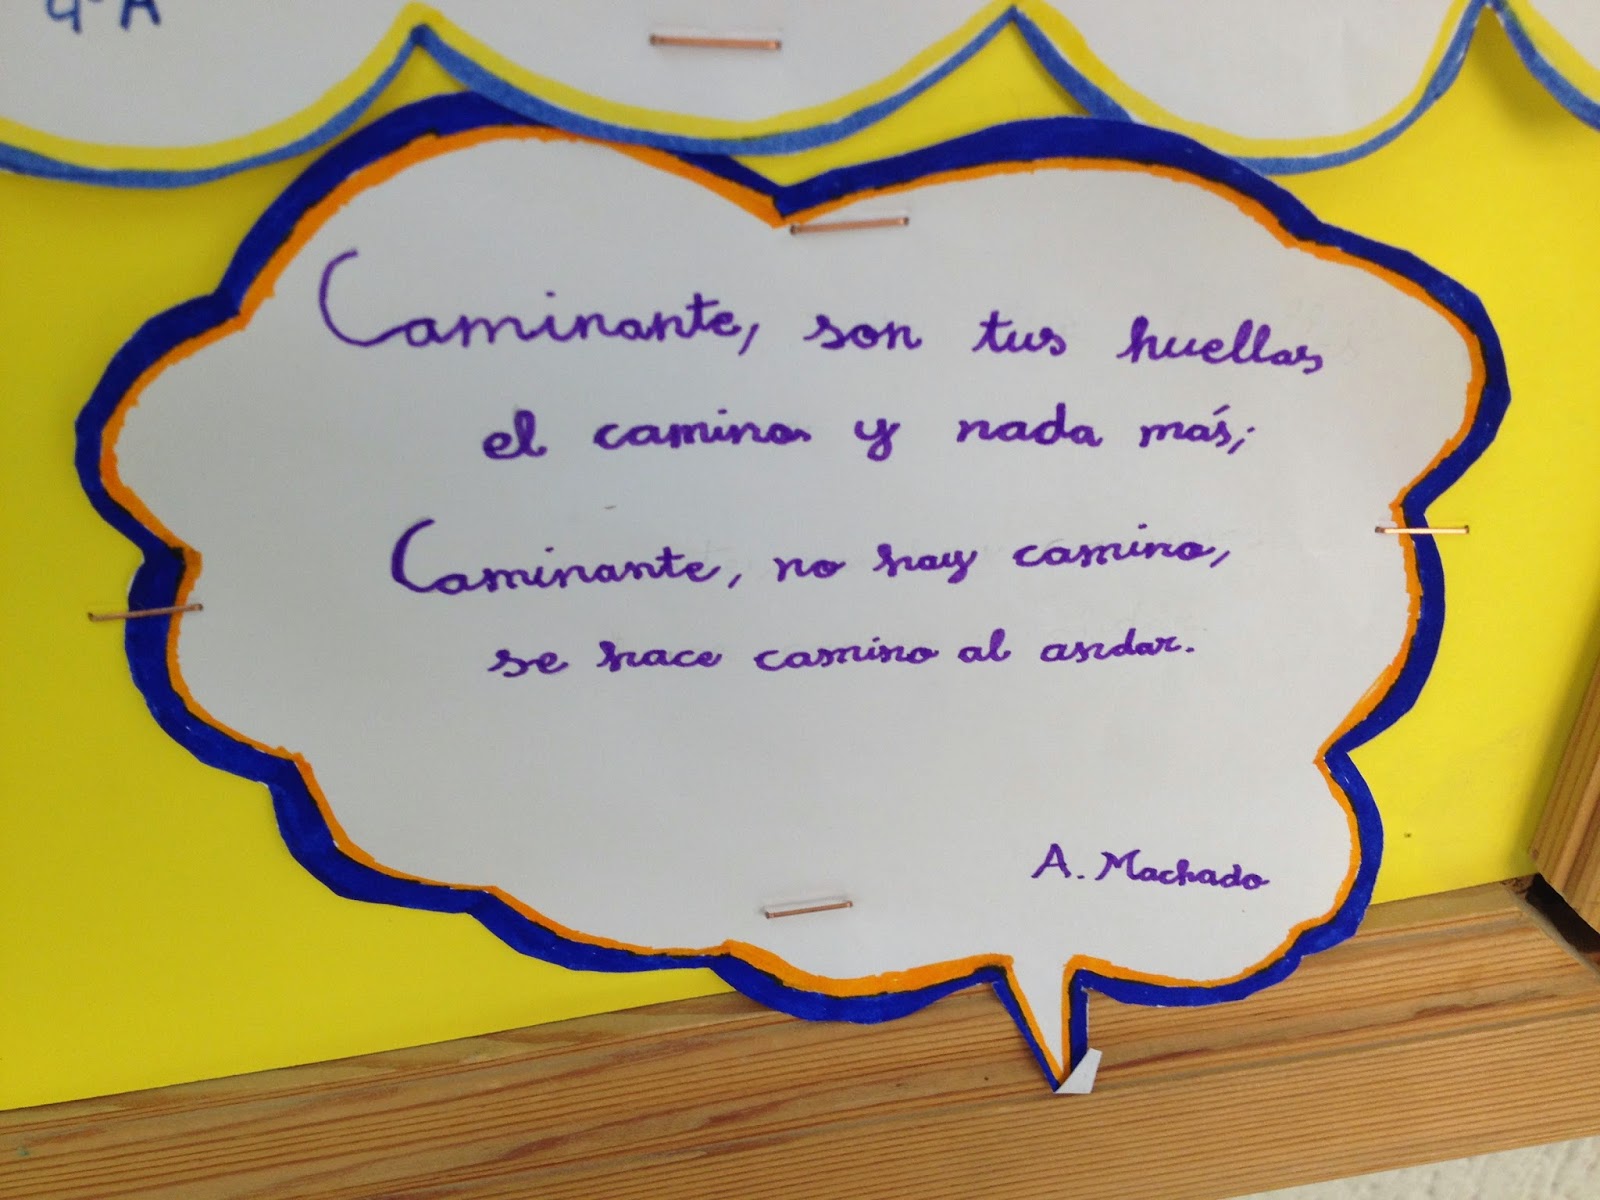 4º A
Caminante, son tus huellas
el camino y nada más;
Caminante, no hay camino,
se hace camino al andar.
A. Machado